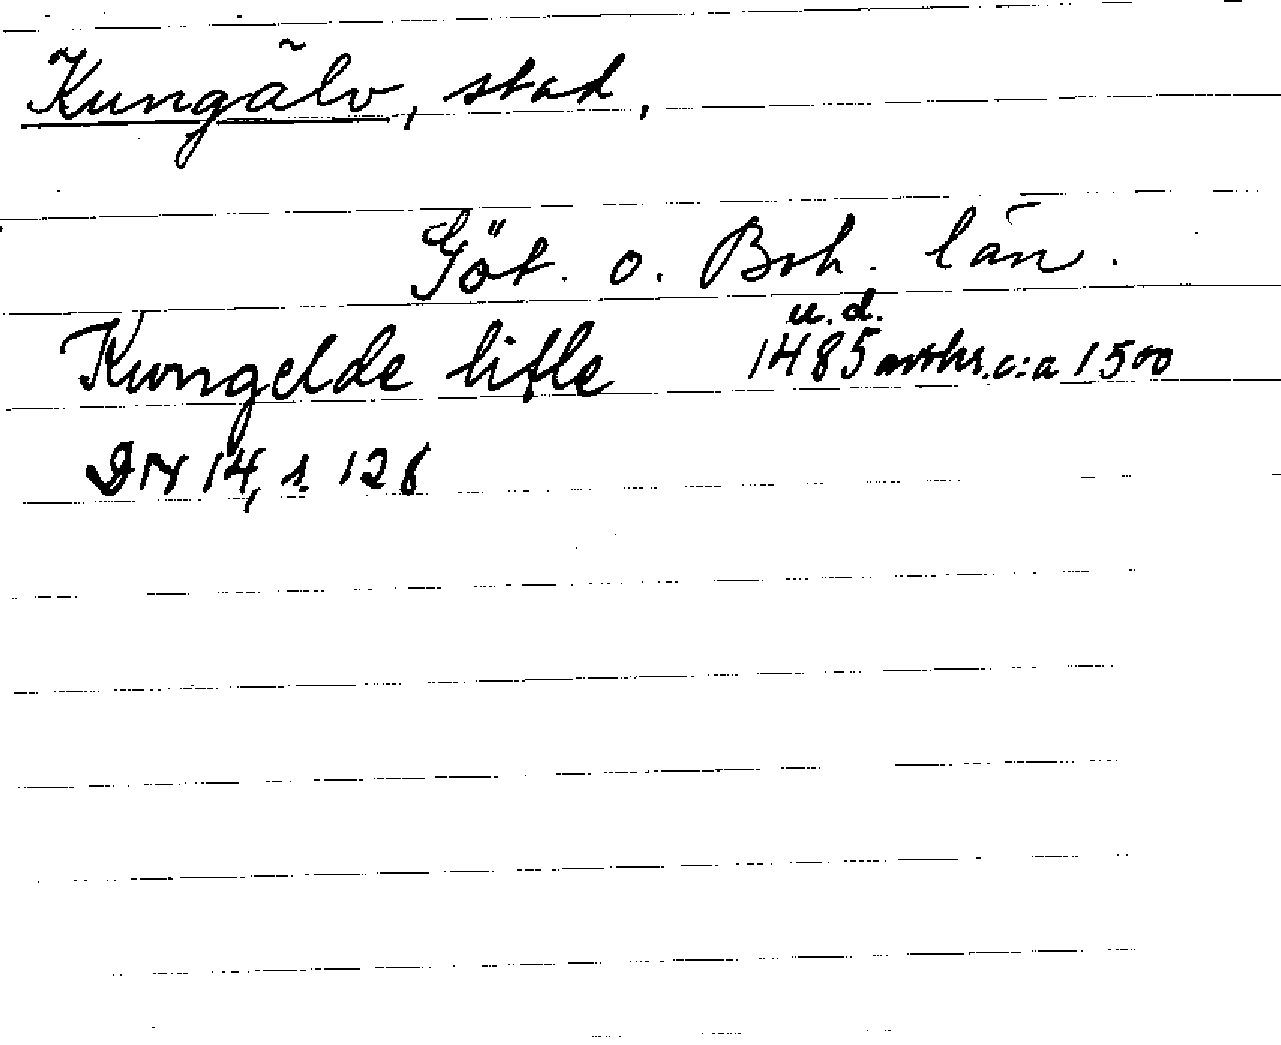 Kungälv, stad,
Göt. o. Boh. län.
u. d.
Kungelde litle 1485 avskr. c:a 1500
DN 14, s. 126